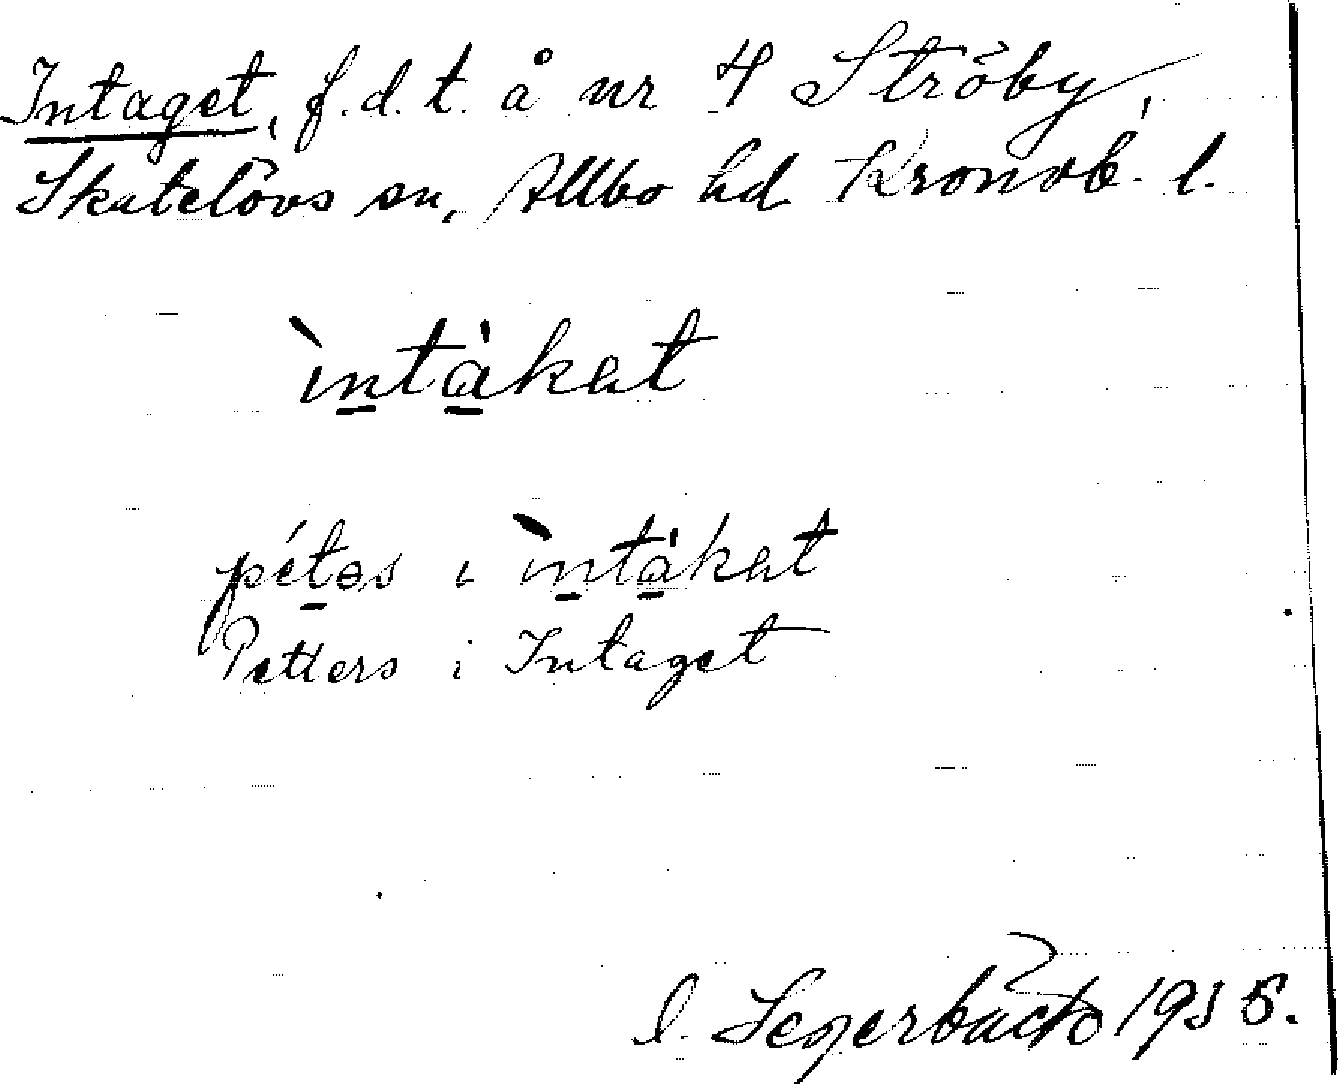 Intaget, f.d.t. å nr 4 Ströby,
Skatelövs sn, Allbo hd Kronob. l.
ìntàkat
pétəs i ìntàkat
Petters i Intaget
1935.